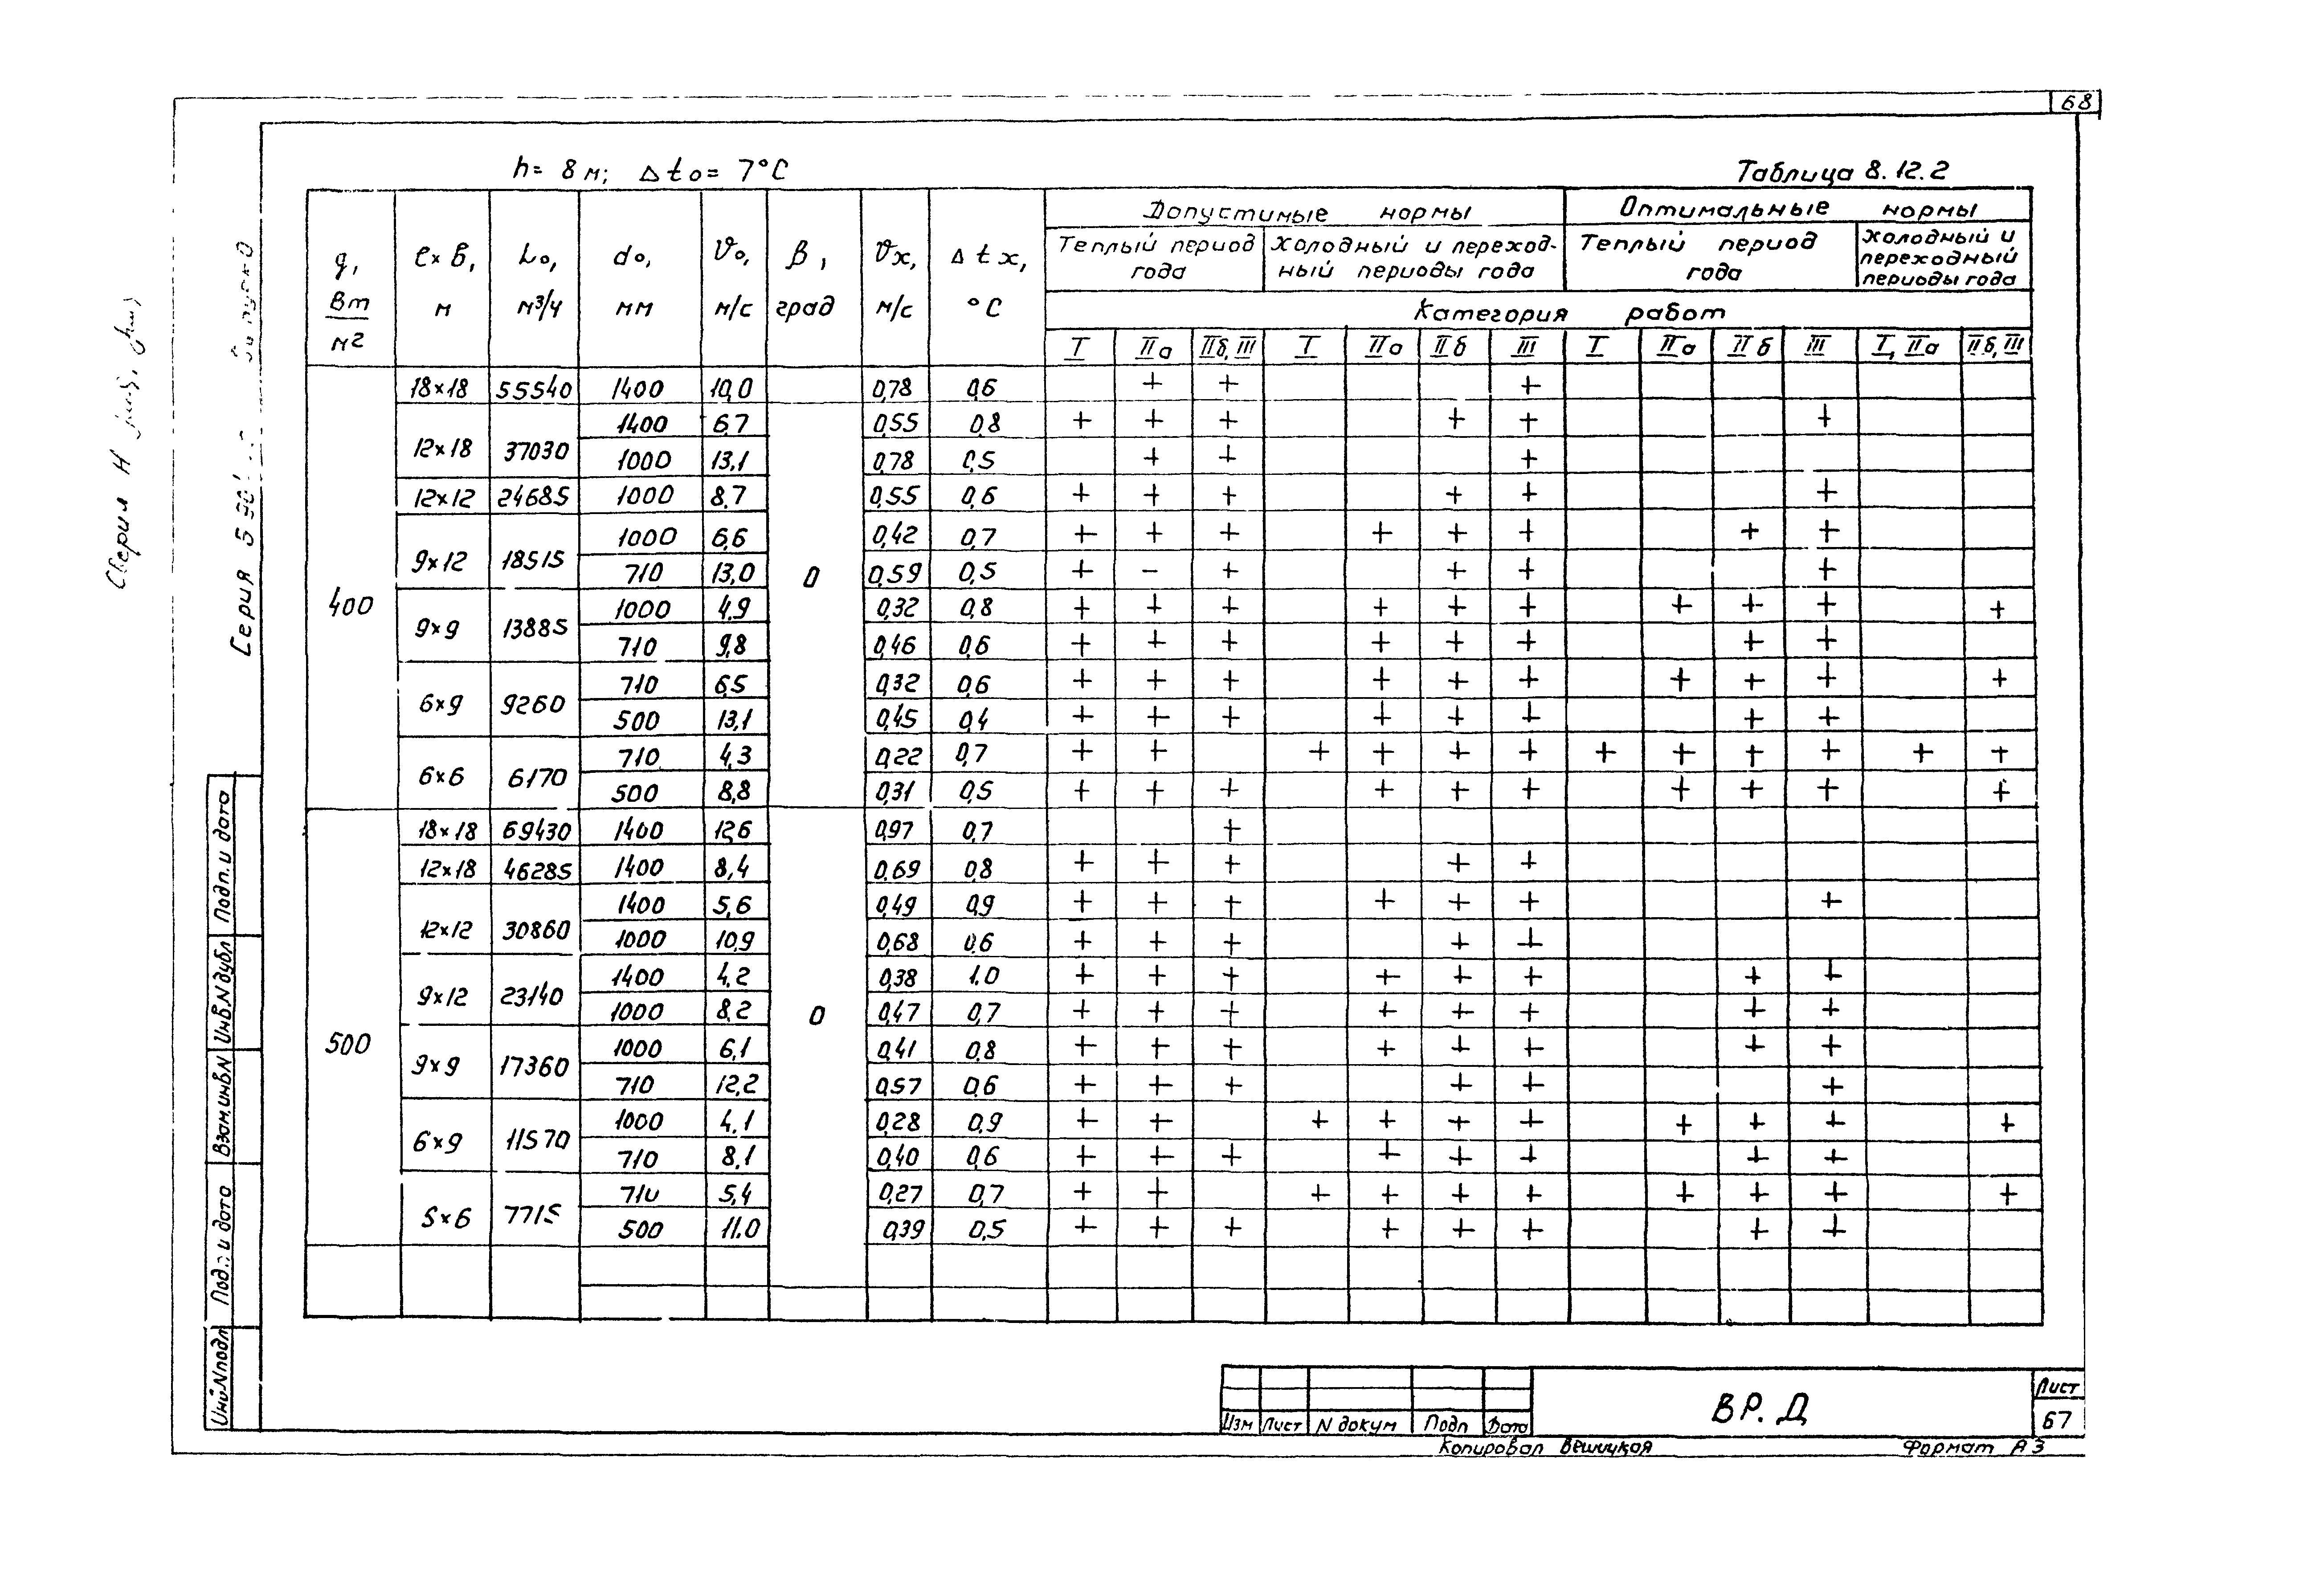 68
h= 8 м; Δto= 7°C
Таблица 8.12.2
q, Вт/м2 | l×в, м | Lo, м3/ч | do, мм | υo, м/с | β, град | υx, м/с | Δtx, °C | Допустимые нормы | Оптимальные нормы
Теплый период года | Холодный и переходный периоды года | Теплый период года | Холодный и переходный периоды года
Категория работ
I | IIа | IIб, III | I | IIа | IIб | III | I | IIа | IIб | III | I, IIа | IIб, III
400 | 18×18 | 55540 | 1400 | 10,0 | 0 | 0,78 | 0,6 | | + | + | | | | + | | | | | |
12×18 | 37030 | 1400 | 6,7 | 0,55 | 0,8 | + | + | + | | | + | + | | | | + | |
1000 | 13,1 | 0,78 | 0,5 | | + | + | | | | + | | | | | |
12×12 | 24685 | 1000 | 8,7 | 0,55 | 0,6 | + | + | + | | | + | + | | | | + | |
9×12 | 18515 | 1000 | 6,6 | 0,42 | 0,7 | + | + | + | | + | + | + | | | + | + | |
710 | 13,0 | 0,59 | 0,5 | + | – | + | | | + | + | | | | + | |
9×9 | 13885 | 1000 | 4,9 | 0,32 | 0,8 | + | + | + | | + | + | + | | + | + | + | | +
710 | 9,8 | 0,46 | 0,6 | + | + | + | | + | + | + | | | + | + | |
6×9 | 9260 | 710 | 6,5 | 0,32 | 0,6 | + | + | + | | + | + | + | | + | + | + | | +
500 | 13,1 | 0,45 | 0,4 | + | + | + | | + | + | + | | | + | + | |
6×6 | 6170 | 710 | 4,3 | 0,22 | 0,7 | + | + | | + | + | + | + | + | + | + | + | + | +
500 | 8,8 | 0,31 | 0,5 | + | + | + | | + | + | + | | + | + | + | | +
500 | 18×18 | 69430 | 1400 | 12,6 | 0 | 0,97 | 0,7 | | | + | | | | | | | | | |
12×18 | 46285 | 1400 | 8,4 | 0,69 | 0,8 | + | + | + | | | + | + | | | | | |
12×12 | 30860 | 1400 | 5,6 | 0,49 | 0,9 | + | + | + | | + | + | + | | | | + | |
1000 | 10,9 | 0,68 | 0,6 | + | + | + | | | + | + | | | | | |
9×12 | 23140 | 1400 | 4,2 | 0,38 | 1.0 | + | + | + | | + | + | + | | | + | + | |
1000 | 8,2 | 0,47 | 0,7 | + | + | + | | + | + | + | | | + | + | |
9×9 | 17360 | 1000 | 6,1 | 0,41 | 0,8 | + | + | + | | + | + | + | | | + | + | |
710 | 12,2 | 0,57 | 0,6 | + | + | + | | | + | + | | | | + | |
6×9 | 11570 | 1000 | 4,1 | 0,28 | 0,9 | + | + | | + | + | + | + | | + | + | + | | +
710 | 8,1 | 0,40 | 0,6 | + | + | + | | + | + | + | | | + | + | |
5×6 | 7715 | 710 | 5,4 | 0,27 | 0,7 | + | + | | + | + | + | + | | + | + | + | | +
500 | 11.0 | 0,39 | 0,5 | + | + | + | | + | + | + | | | + | + | |
Серия
Серия
Подп. и дата
Инв.N дубл
Взам.инв.N
Под. и дата
Инв N подл
Изм Лист N докум Подп Дата
ВР. Д
Лист
67
Копировал Вешицкая
Формат А3